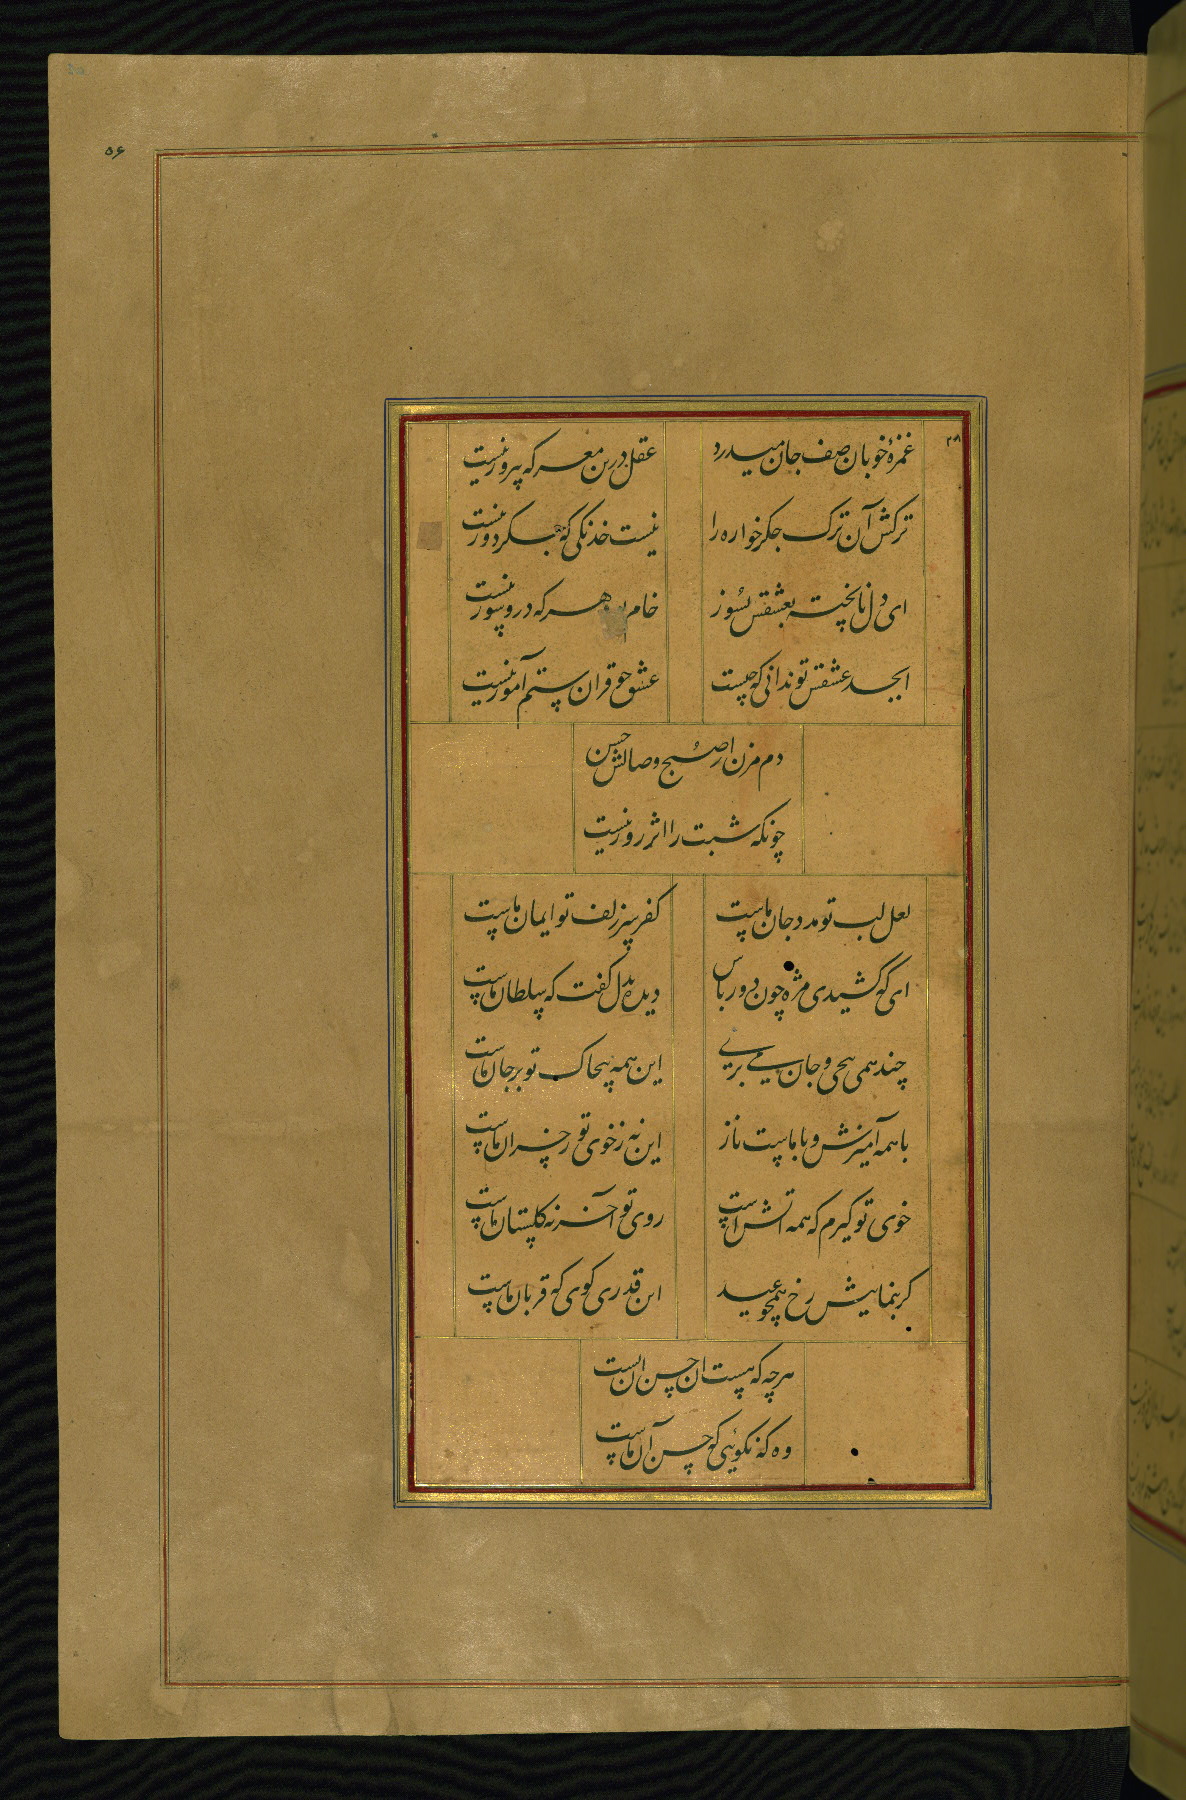 ۵۶
۲۸
غمزهٔ خوبان صف جان میدرد
عقل درین معرکه پیروز نیست
ترکش آن ترک جکر خواره را
نیست خدنکی که جکر دوز نیست
ای دل ناپخته بعشقش بسوز
خام بود هر که درو سوز نیست
ابجد عشقش تو ندانی که چیست
عشق حق قران ستم آموز نیست
دم مزن از صبح وصالش حسن
چونکه شبت را اثر روز نیست
لعل لب تو مدد جان ماست
کفر سر زلف تو ایمان ماست
ای که کشیدی مژه چون دور باس
دیده بدل کفت که سلطان ماست
چند همی پیچی و جان می بری
این همه پیچاک تو بر جان ماست
با همه آمیزش و با ماست ناز
این نه ز خوی تو ز خسران ماست
خوی تو کیرم که همه اتش است
روی تو آخر نه کلستان ماست
کر بنمایش رخ همچو عید
این قدری کوی که قربان ماست
هر چه که هست ان حسن انست
وه که نکوئی که حسن آن ماست